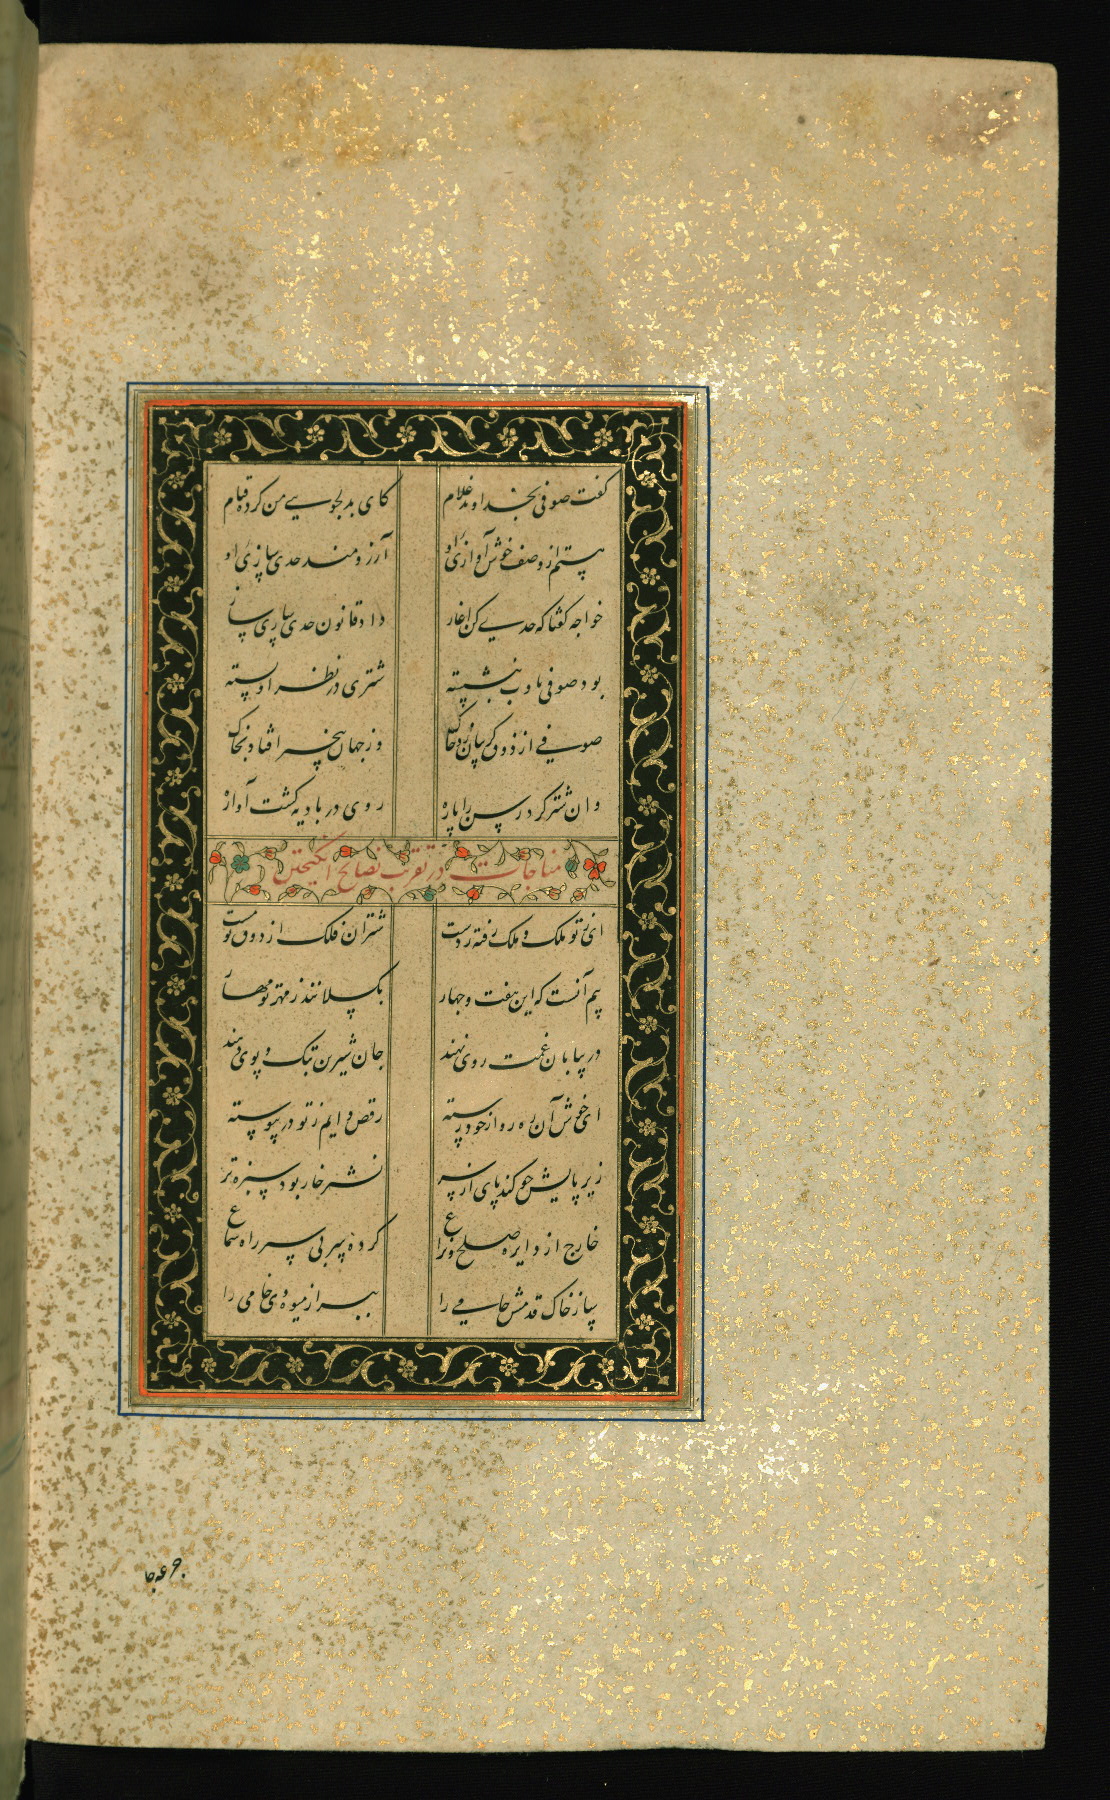 گفت صوفی بخداوند غلام کای بدلجویی من کرده قیام
هستم از وصف خوش آوازی او آرزومند حدی سازی او
خواجه گفتا که حدی کن آغاز داد قانون حدی سازی ساز
بود صوفی بادب بنشسته شتری در نظر او بسته
صوفی از ذوق گریبان زد چاک وز جهان بیخبر افتاد بخاک
وان شتر کرد رسن را پاره روی در بادیه گشت آواره
مناجات در تقریب نصایح انگیختن
ای ز تو ملک و ملک رفته ز دست شتران فلک از ذوق تو مست
بیم آنست که این هفت و چهار بگسلانند ز مهر تو مهار
در بیابان غمت روی نهند جان شیرین بتک و پوی دهند
ای خوش آن ره رو از خود رسته رقص دایم ز تو در پیوسته
زیر پایش چو کند پای از سر نشتر خار بود سبزه تر
خارج از دایره صلح و نزاع کرده پی بر پی سر راه سماع
ساز خاک قدمش جامی را ببر از میوه وی خامی را